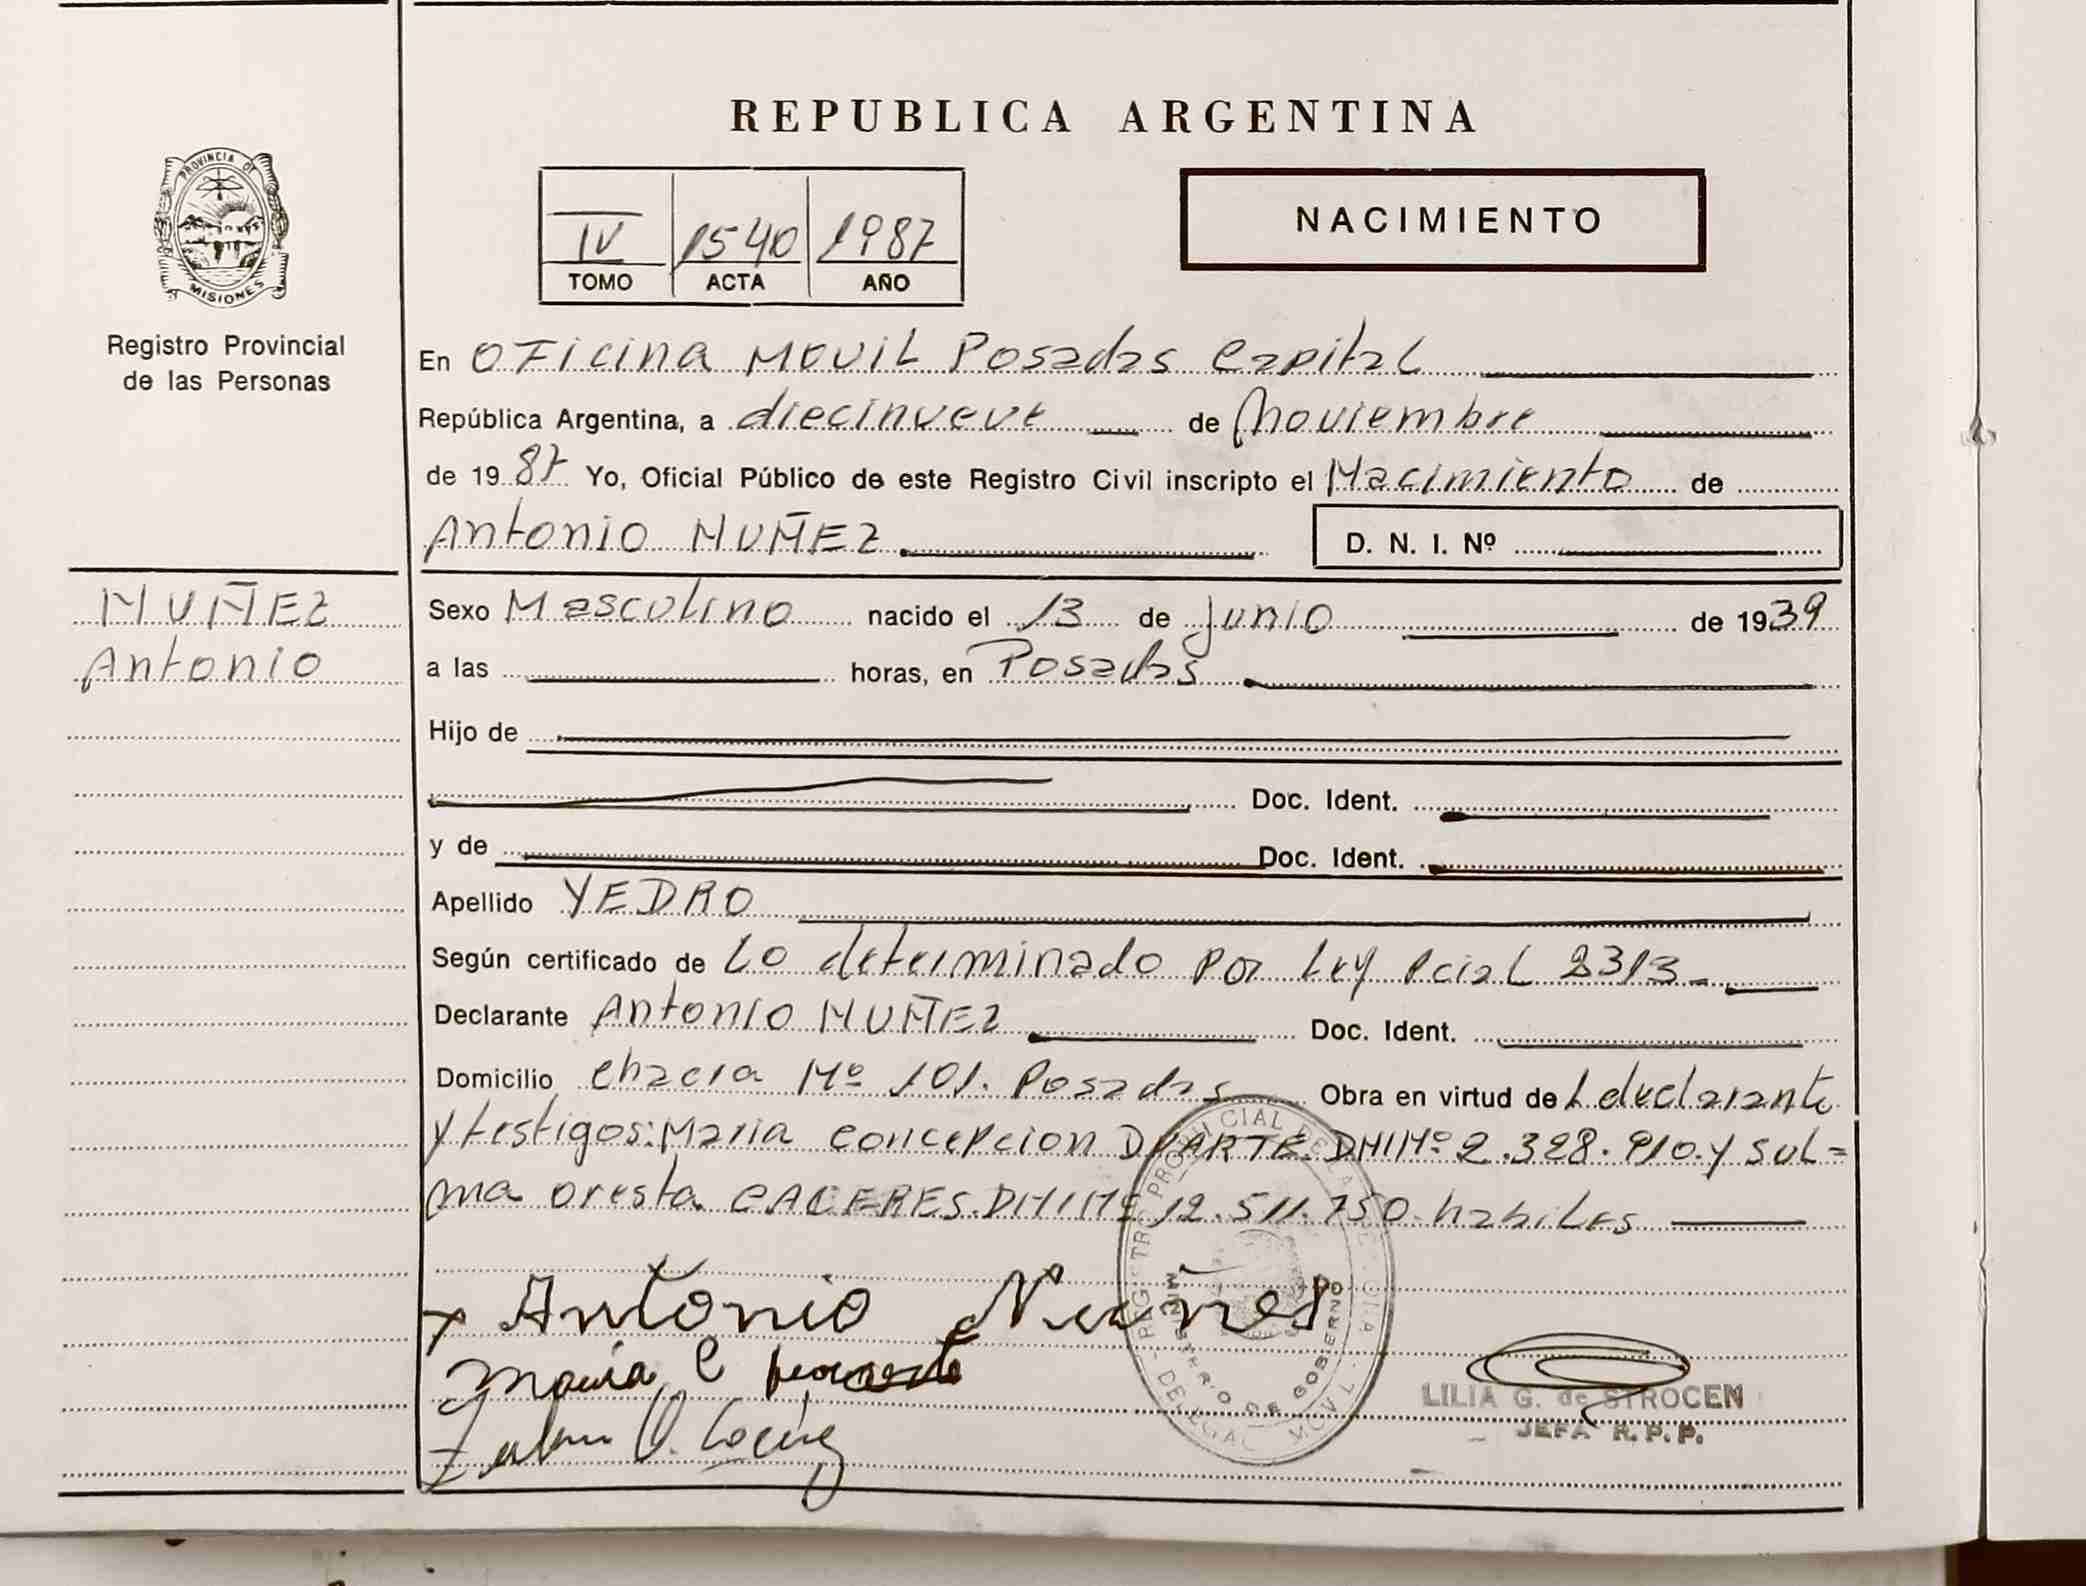 REPUBLICA ARGENTINA
PROVINCIA DE
MISIONES
Registro Provincial
de las Personas
IV 1540 1987
TOMO ACTA AÑO
NACIMIENTO
En OFicina MOVIL Posadas Capital
República Argentina, a diecinueve de Noviembre
de 19 87 Yo, Oficial Público de este Registro Civil inscripto el Nacimiento de
Antonio NUÑEZ D. N. I. Nº
NUÑEZ
Antonio
Sexo Masculino nacido el 13 de junio de 1939
a las horas, en Posadas
Hijo de
Doc. Ident.
y de Doc. Ident.
Apellido YEDRO
Según certificado de Lo determinado Por Ley Pcial 2313-
Declarante Antonio NUÑEZ Doc. Ident.
Domicilio Chacra Nº 101. Posadas Obra en virtud del declarante
y testigos: Maria Concepcion DUARTE DNINº 2.328.910. y SUL=
ma Oresta CACERES. DNINº 12.511.750. habiles
x Antonio Nuñes
Maria C
REGISTRO PROVINCIAL DE LAS
MINISTERIO DE GOBIERNO
MOVIL
LILIA G. de STROCEN
JEFA R. P. P.